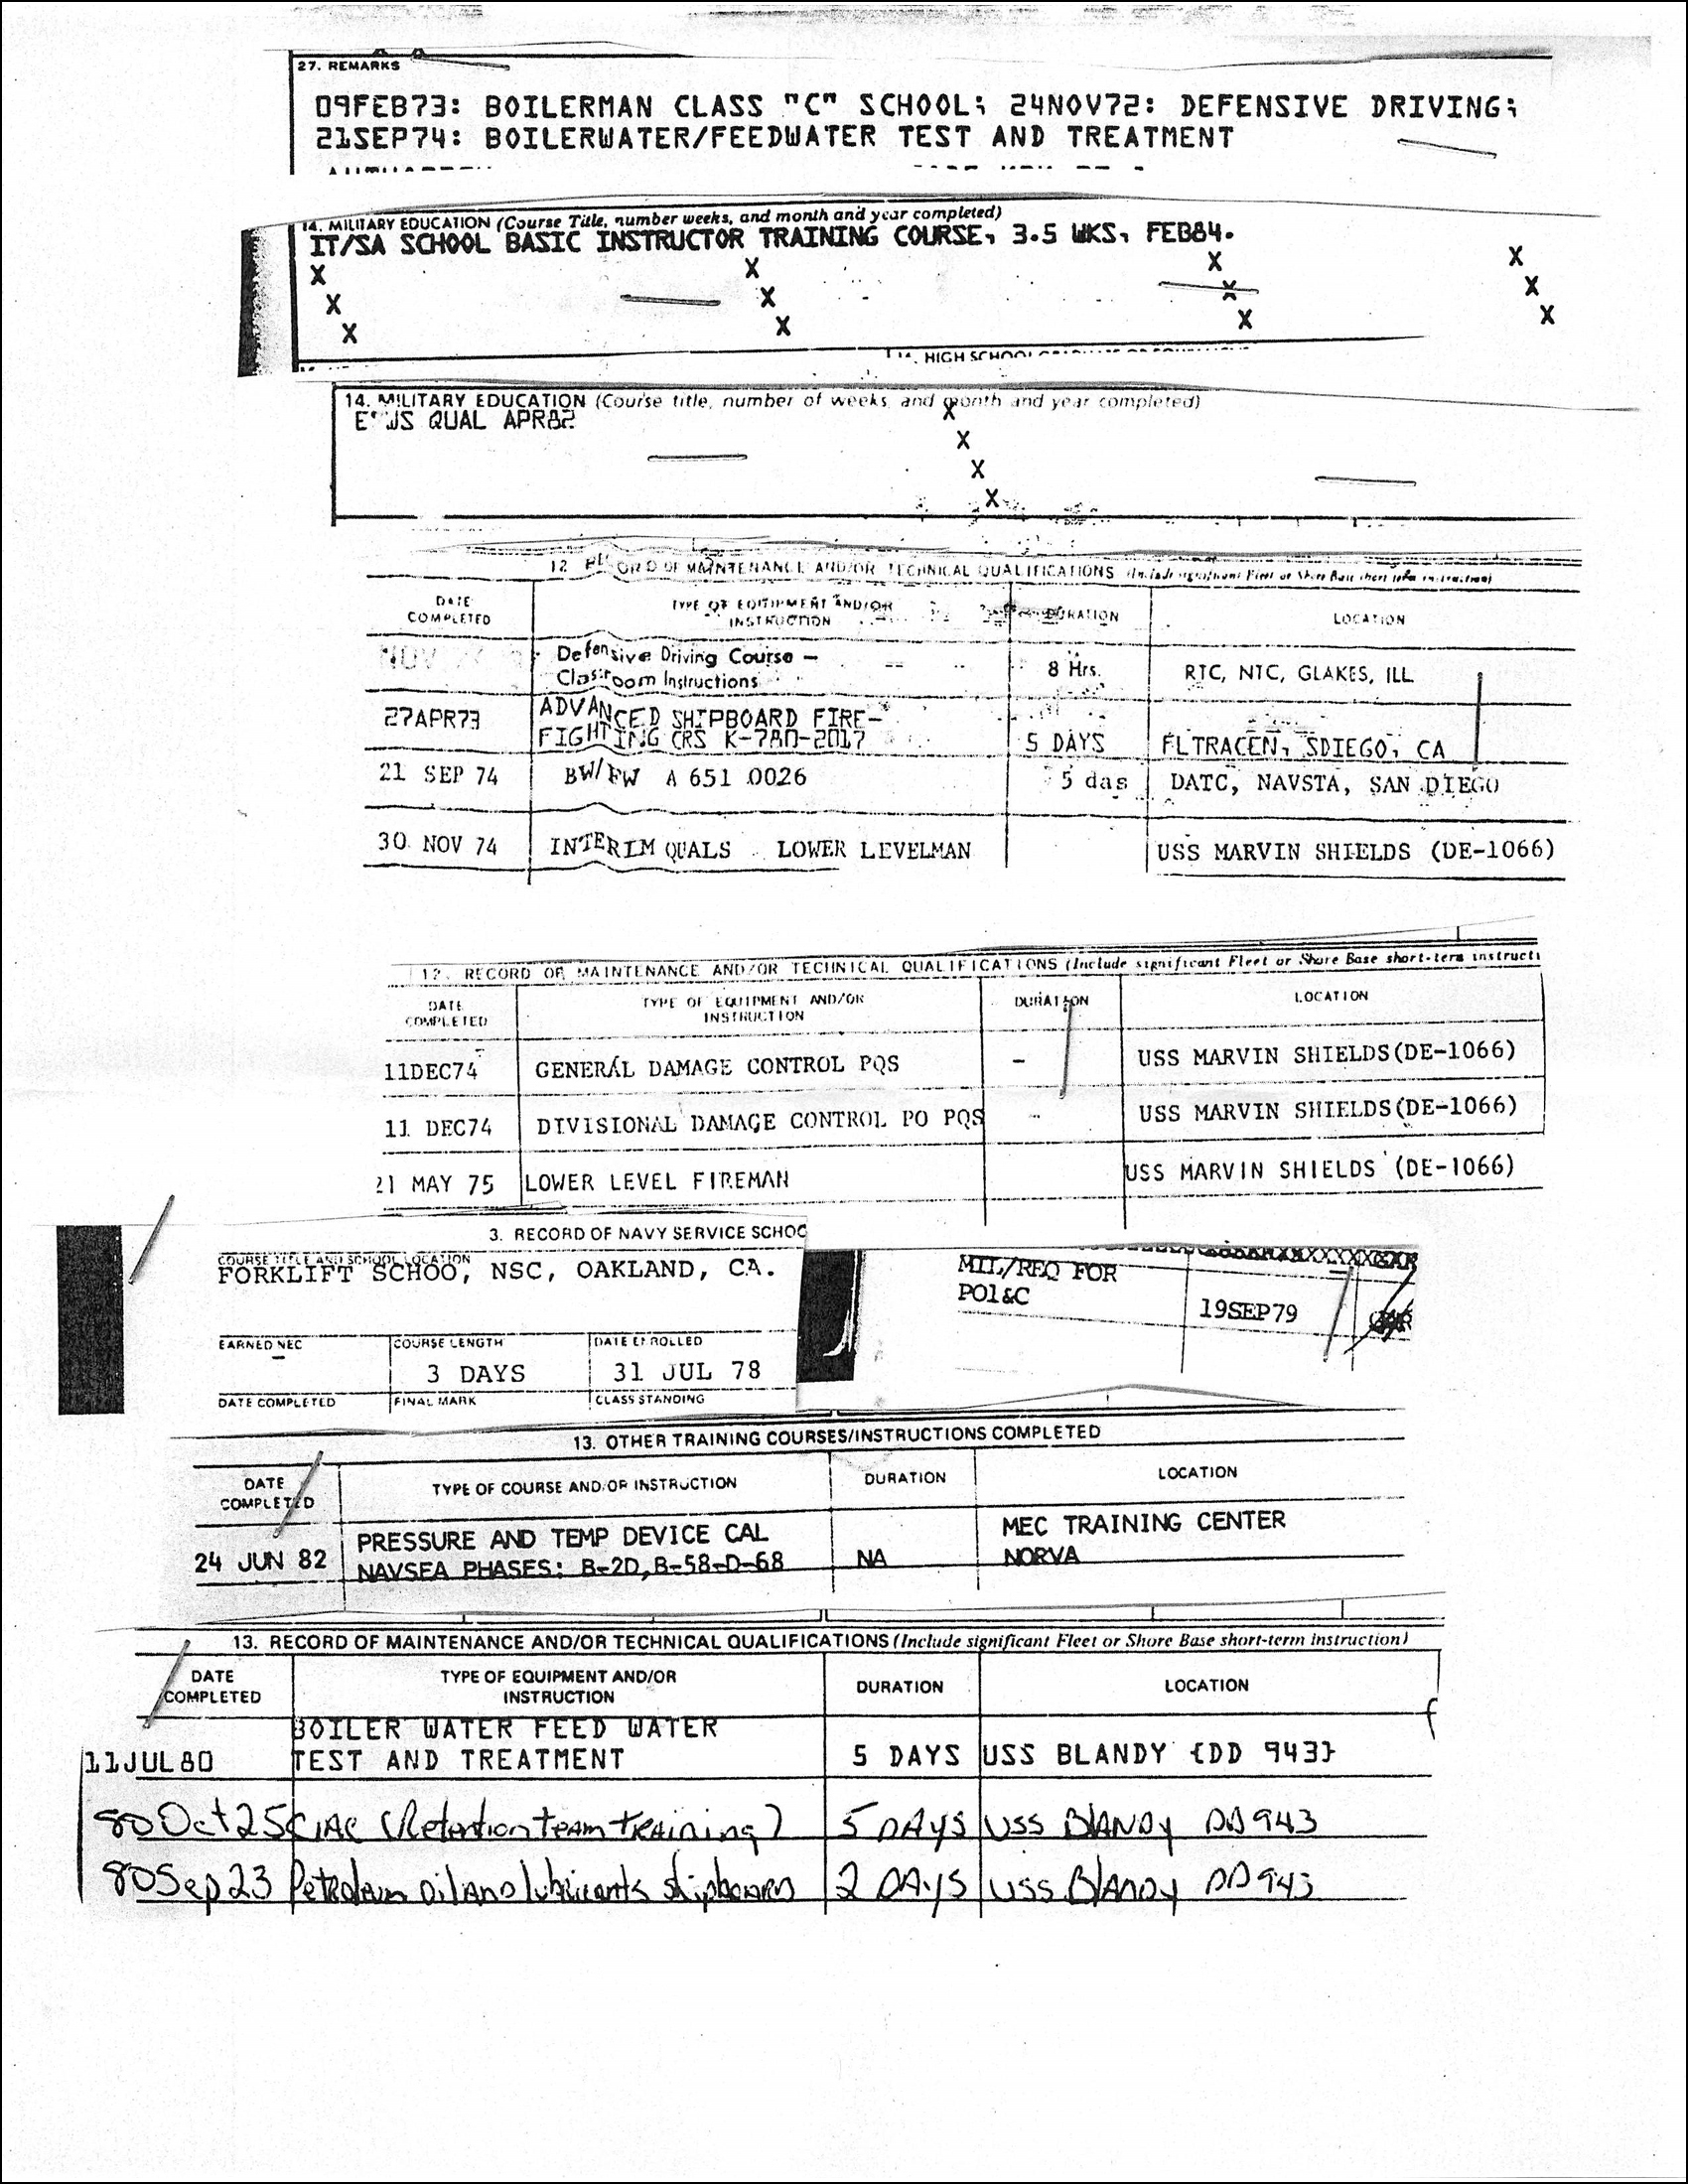 27. REMARKS
09FEB73: BOILERMAN CLASS "C" SCHOOL; 24NOV72: DEFENSIVE DRIVING;
21SEP74: BOILERWATER/FEEDWATER TEST AND TREATMENT
14. MILITARY EDUCATION (Course Title, number weeks, and month and year completed)
IT/SA SCHOOL BASIC INSTRUCTOR TRAINING COURSE, 3.5 WKS, FEB84.
X X X X
X X X X
X X X X
14. HIGH SCHOOL
14. MILITARY EDUCATION (Course title, number of weeks, and month and year completed)
QUAL APR82
X
X
X
X
12. RECORD OF MAINTENANCE AND/OR TECHNICAL QUALIFICATIONS (Include significant Fleet or Shore Base short term instruction)
DATE COMPLETED TYPE OF EQUIPMENT AND/OR INSTRUCTION DURATION LOCATION
NOV Defensive Driving Course –
Classroom Instructions 8 Hrs. RTC, NTC, GLAKES, ILL
27APR73 ADVANCED SHIPBOARD FIRE-
FIGHTING CRS K-780-2017 5 DAYS FLTRACEN, SDIEGO, CA
21 SEP 74 BW/FW A 651 0026 5 das DATC, NAVSTA, SAN DIEGO
30 NOV 74 INTERIM QUALS LOWER LEVELMAN USS MARVIN SHIELDS (DE-1066)
12. RECORD OF MAINTENANCE AND/OR TECHNICAL QUALIFICATIONS (Include significant Fleet or Shore Base short-term instructi
DATE COMPLETED TYPE OF EQUIPMENT AND/OR INSTRUCTION DURATION LOCATION
11DEC74 GENERAL DAMAGE CONTROL PQS - USS MARVIN SHIELDS(DE-1066)
11 DEC74 DIVISIONAL DAMAGE CONTROL PO PQS - USS MARVIN SHIELDS(DE-1066)
21 MAY 75 LOWER LEVEL FIREMAN USS MARVIN SHIELDS (DE-1066)
3. RECORD OF NAVY SERVICE SCHOO
COURSE TITLE AND SCHOOL LOCATION
FORKLIFT SCHOO, NSC, OAKLAND, CA.
EARNED NEC COURSE LENGTH DATE ENROLLED
– 3 DAYS 31 JUL 78
DATE COMPLETED FINAL MARK CLASS STANDING
MIL/REQ FOR
PO1&C 19SEP79
13. OTHER TRAINING COURSES/INSTRUCTIONS COMPLETED
DATE COMPLETED TYPE OF COURSE AND/OR INSTRUCTION DURATION LOCATION
PRESSURE AND TEMP DEVICE CAL MEC TRAINING CENTER
24 JUN 82 NAVSEA PHASES: B-2D,B-58-D-68 NA NORVA
13. RECORD OF MAINTENANCE AND/OR TECHNICAL QUALIFICATIONS (Include significant Fleet or Shore Base short-term instruction)
DATE COMPLETED TYPE OF EQUIPMENT AND/OR INSTRUCTION DURATION LOCATION
BOILER WATER FEED WATER
11JUL80 TEST AND TREATMENT 5 DAYS USS BLANDY {DD 943}
80 Oct 25 (Retention team training) 5 DAYS USS BLANDY DD943
80 Sep 23 Petroleum oil and lubricants shipboard 2 DAYS USS BLANDY DD943